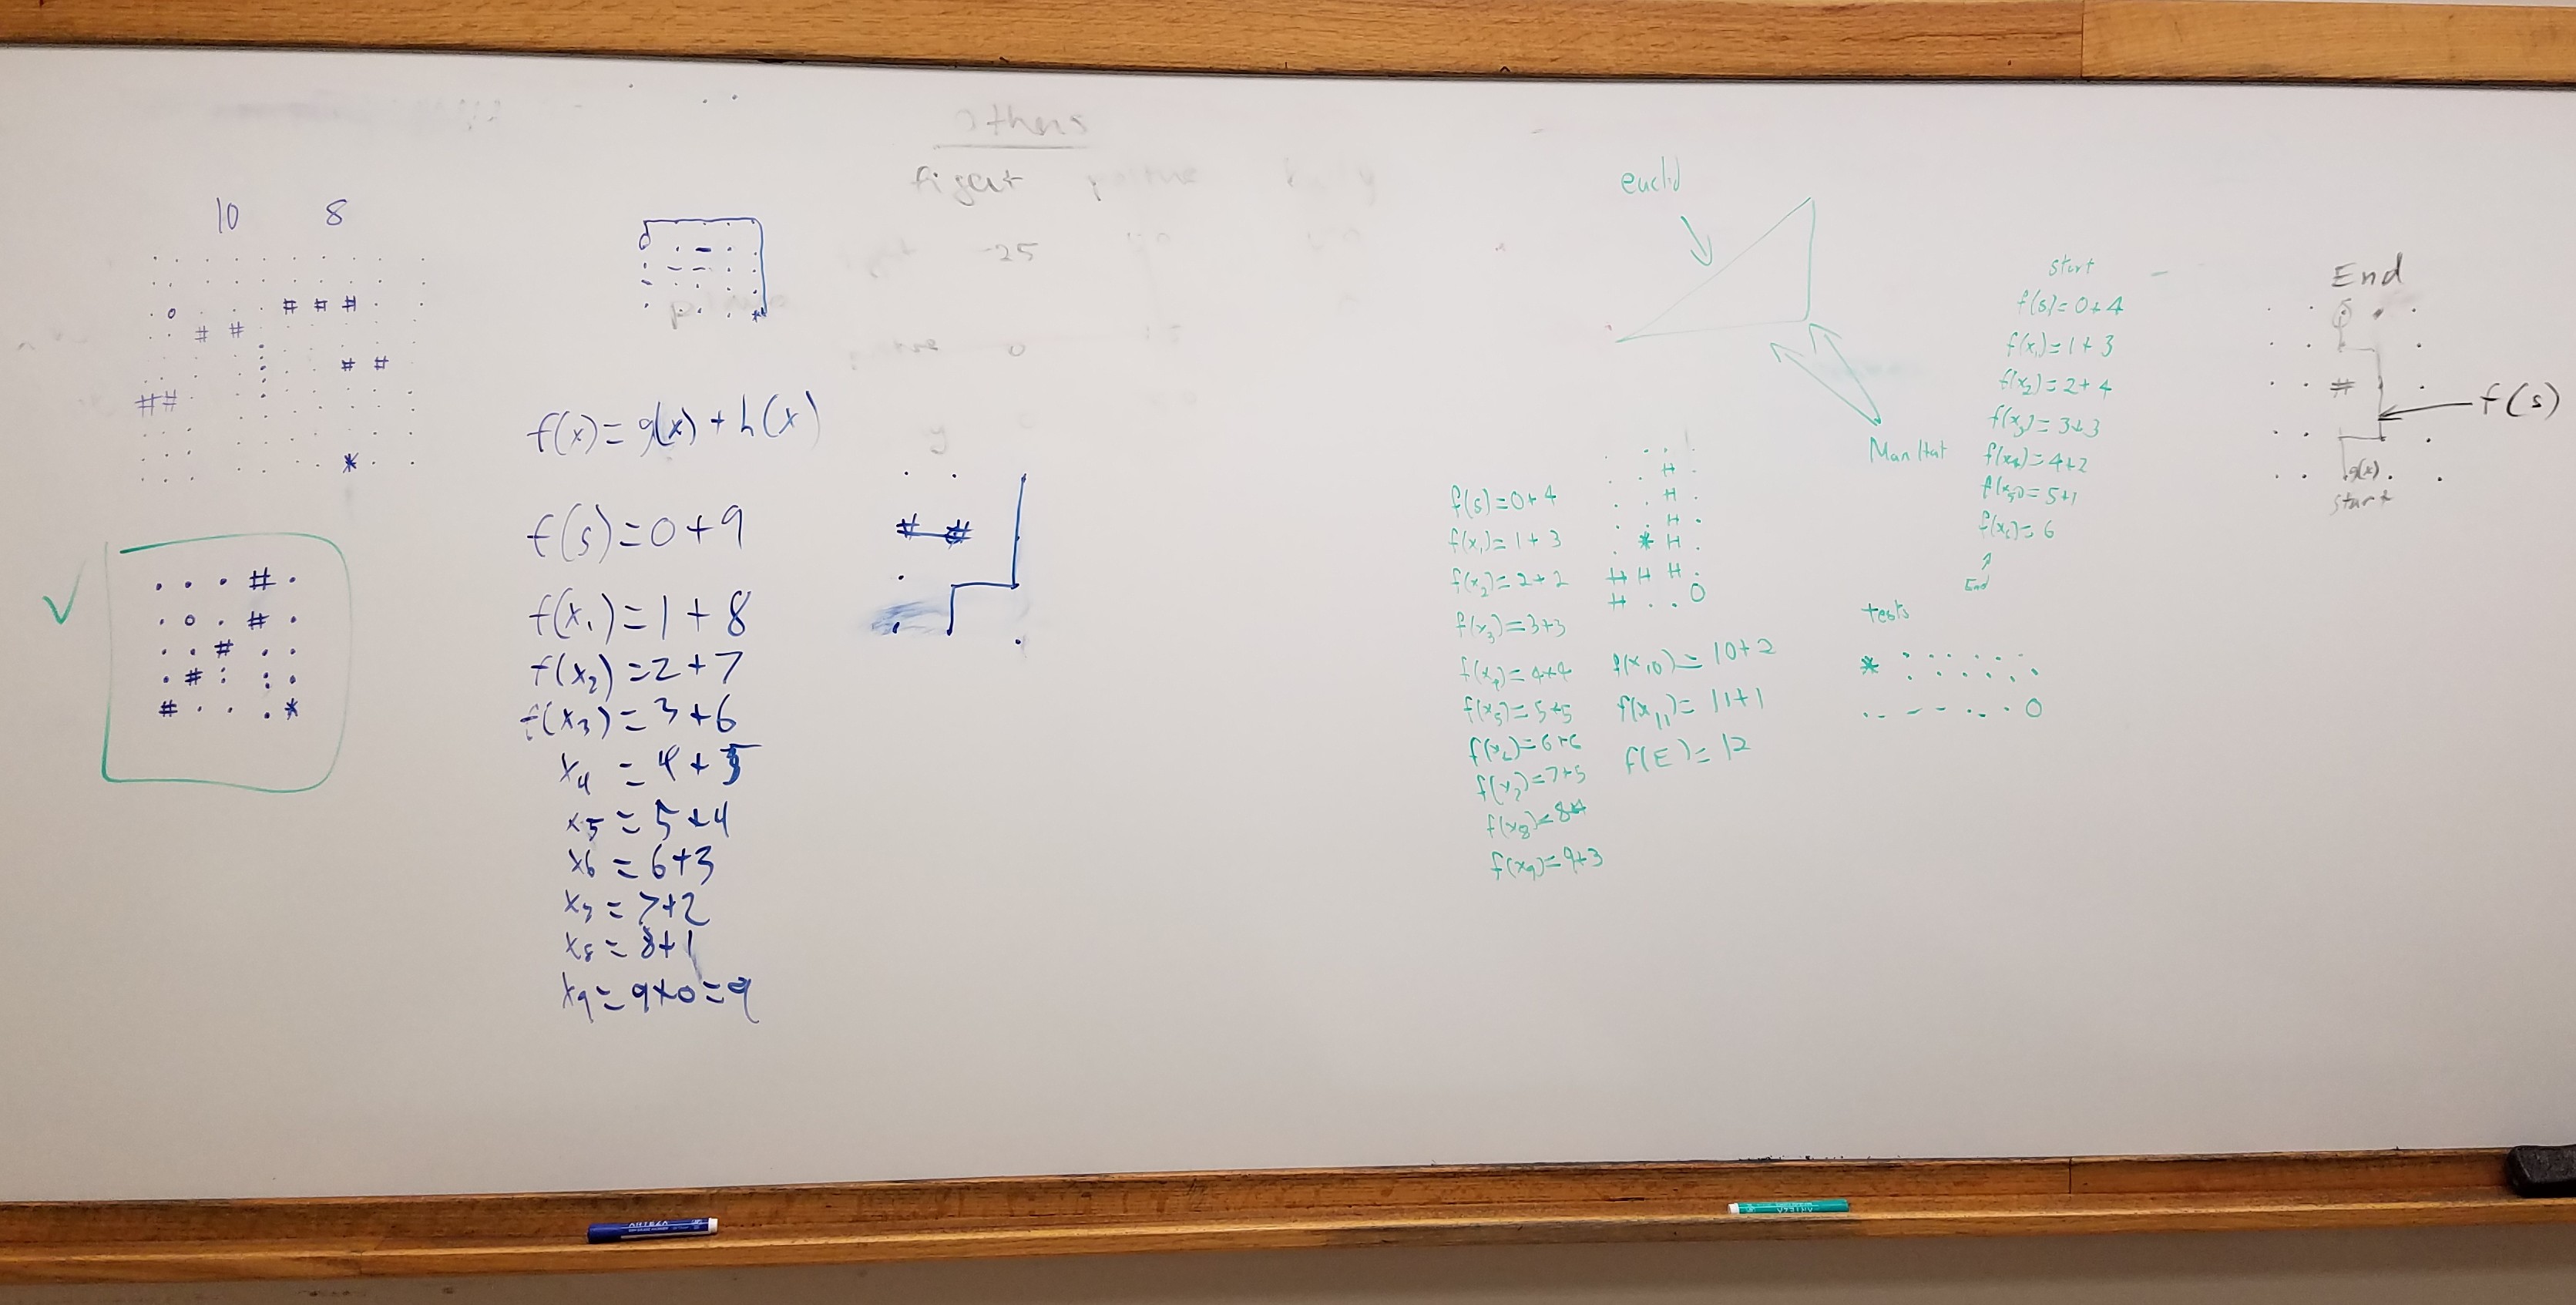 10 8
# # #
# #
# #
##
*
. . . # .
. o . # .
. . # . .
. # : : .
# . . . *
f(x) = g(x) + h(x)
f(s) = 0 + 9
f(x₁) = 1 + 8
f(x₂) = 2 + 7
f(x₃) = 3 + 6
x₄ = 4 + 5
x₅ = 5 + 4
x₆ = 6 + 3
x₇ = 7 + 2
x₈ = 8 + 1
x₉ = 9 + 0 = 9
others
-25
0
y
# #
euclid
Manhat
f(s) = 0 + 4
f(x₁) = 1 + 3
f(x₂) = 2 + 2
f(x₃) = 3+3
f(x₄) = 4+4
f(x₅) = 5+5
f(x₆) = 6+6
f(x₇) = 7+5
f(x₈) = 8+4
f(x₉) = 9+3
H
H
H
* H
H H H
H . . O
f(x₁₀) = 10+2
f(x₁₁) = 11+1
f(E) = 12
start
f(s) = 0+4
f(x₁) = 1 + 3
f(x₂) = 2 + 4
f(x₃) = 3+3
f(x₄) = 4+2
f(x₅) = 5+1
f(x₆) = 6
End
tests
*
O
End
#
f(s)
g(x)
start
ARTEZA
ARTEZA